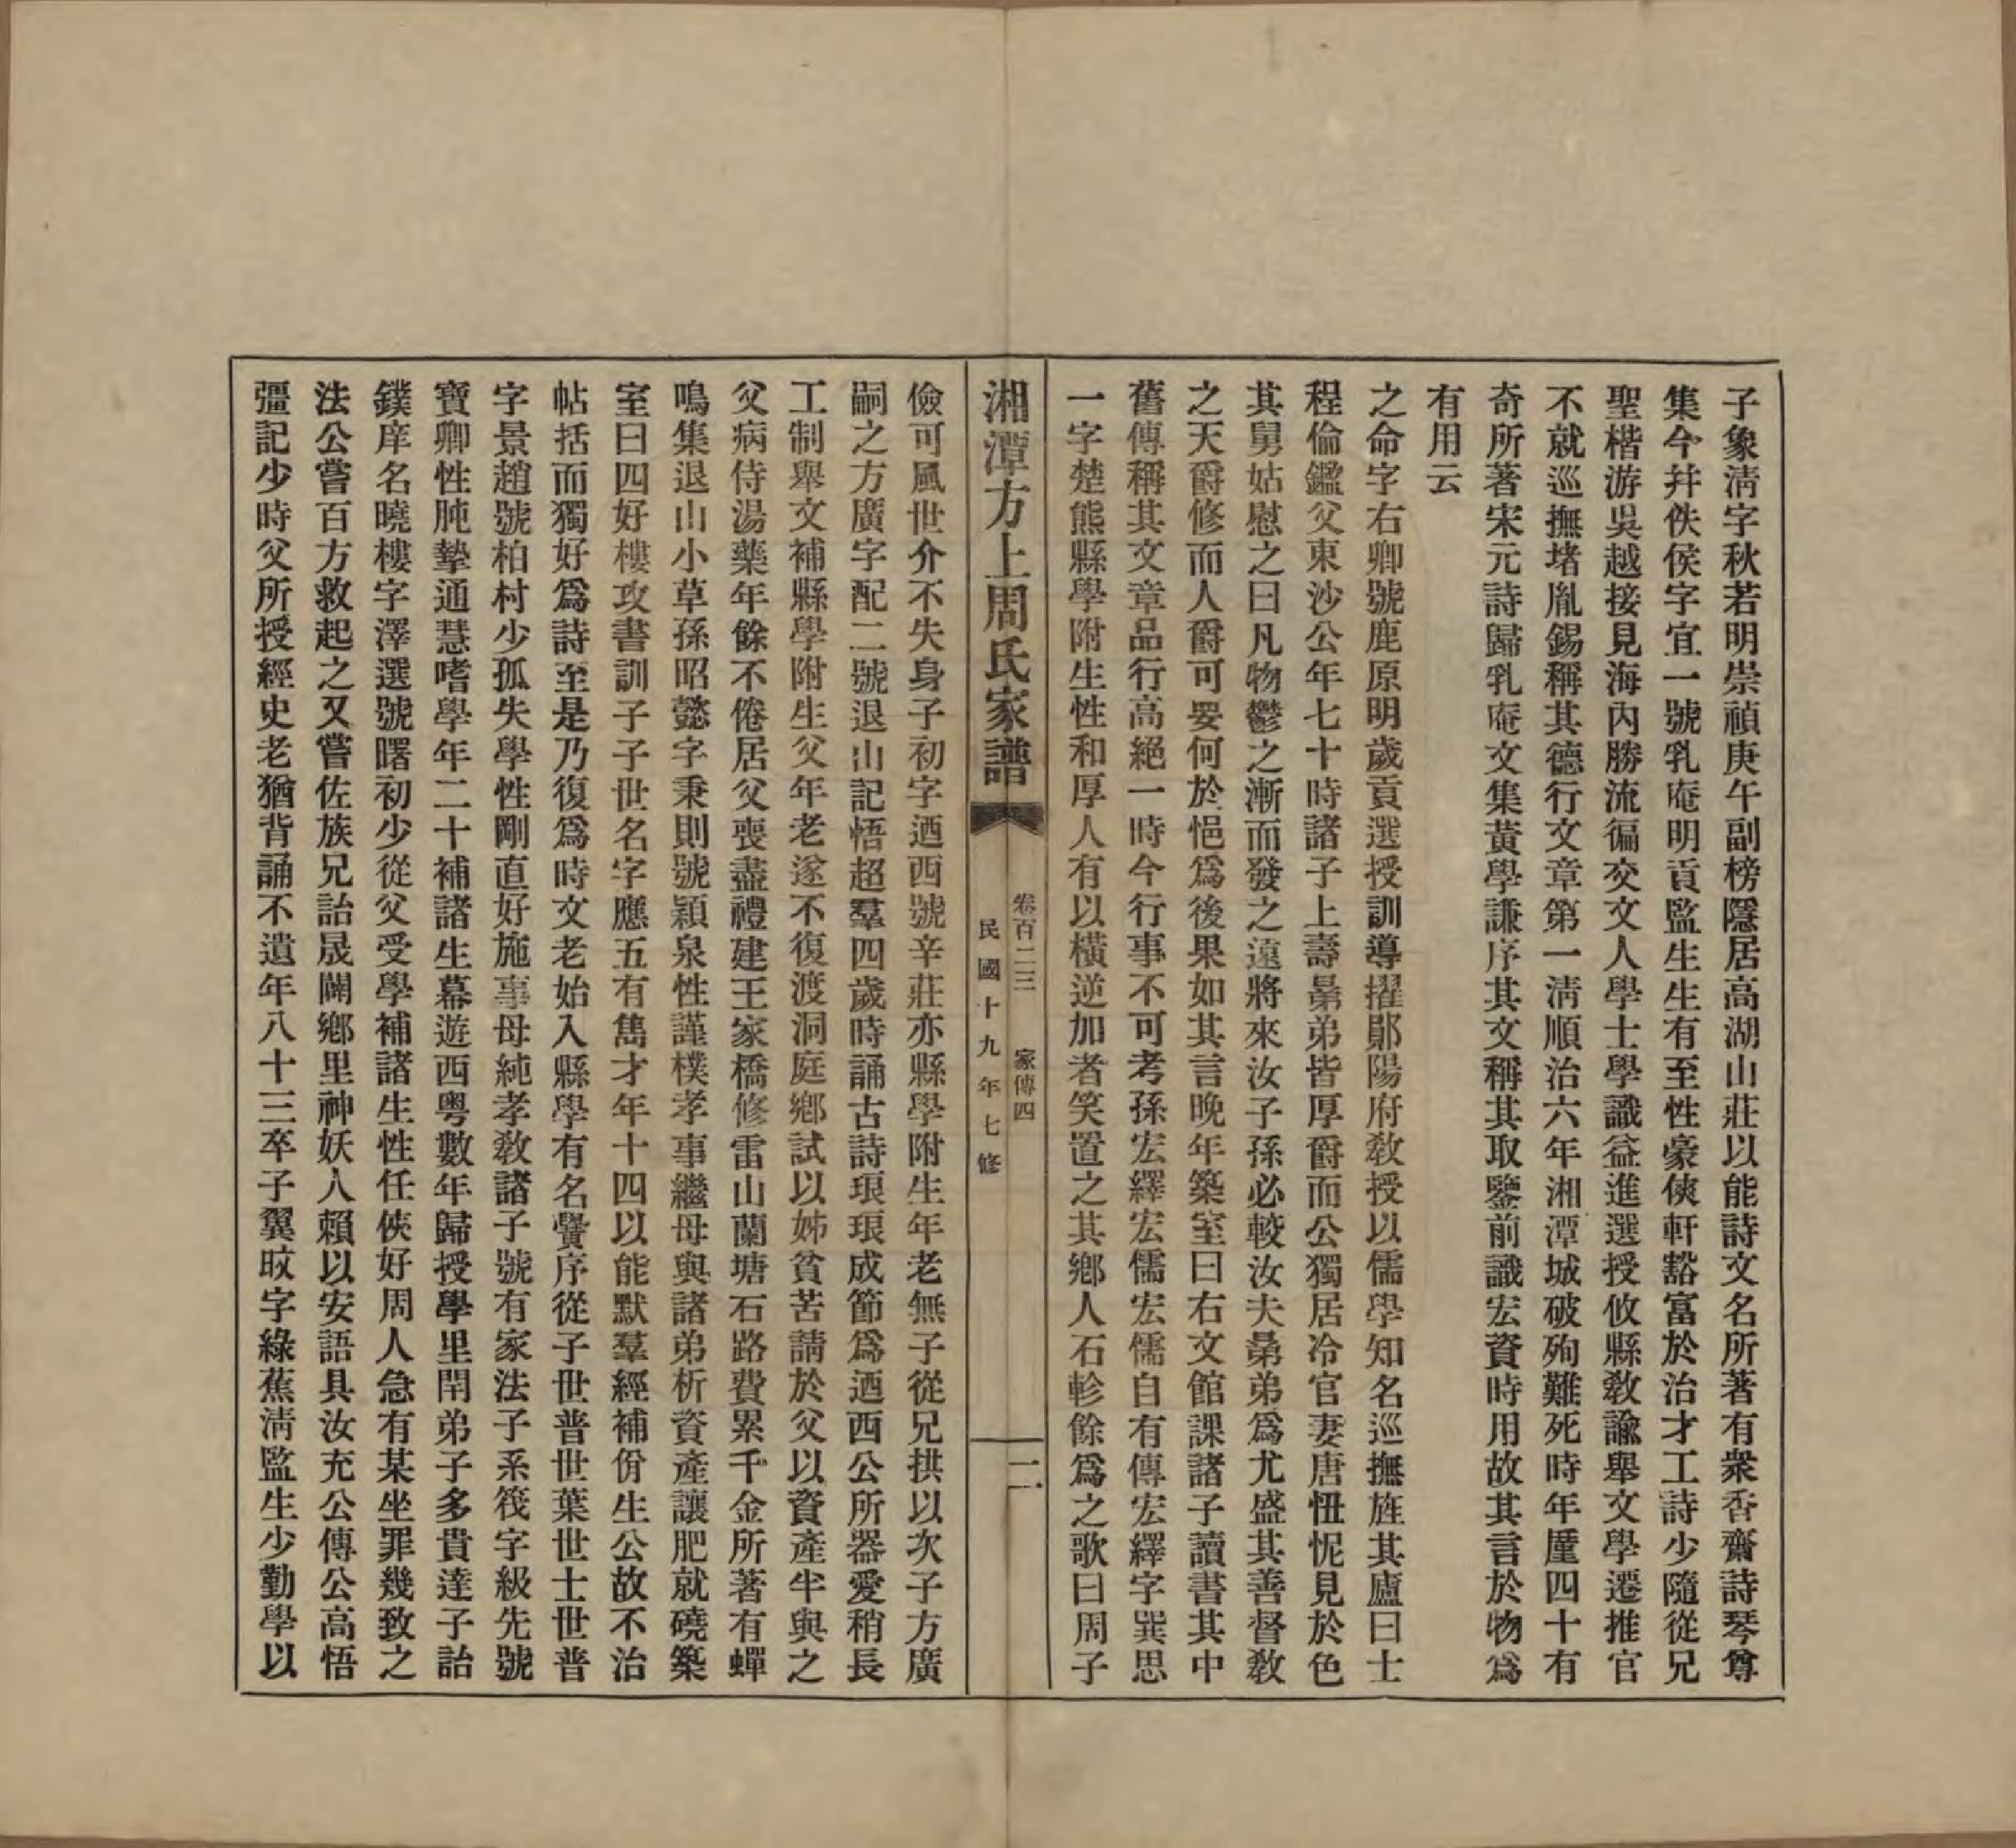 子象淸字秋若明崇禎庚午副榜隱居高湖山莊以能詩文名所著有衆香齋詩琴尊
集今幷佚侯字宜一號乳庵明貢監生生有至性豪俠軒豁富於治才工詩少隨從兄
聖楷游吳越接見海內勝流徧交文人學士學識益進選授攸縣敎諭舉文學遷推官
不就巡撫堵胤錫稱其德行文章第一淸順治六年湘潭城破殉難死時年厪四十有
奇所著宋元詩歸乳庵文集黃學謙序其文稱其取鑒前識宏資時用故其言於物爲
有用云
之命字右卿號鹿原明歲貢選授訓導擢鄖陽府敎授以儒學知名巡撫旌其廬曰士
程倫鑑父東沙公年七十時諸子上壽㬅弟皆厚爵而公獨居冷官妻唐忸怩見於色
其舅姑慰之曰凡物鬱之漸而發之遠將來汝子孫必較汝夫㬅弟爲尤盛其善督敎
之天爵修而人爵可要何於悒爲後果如其言晚年築室曰右文館課諸子讀書其中
舊傳稱其文章品行高絕一時今行事不可考孫宏繹宏儒宏儒自有傳宏繹字巽思
一字楚熊縣學附生性和厚人有以橫逆加者笑置之其鄕人石軫餘爲之歌曰周子
湘潭方上周氏家譜
卷百二三 家傳四
二
民國十九年七修
儉可風世介不失身子初字迺西號辛莊亦縣學附生年老無子從兄拱以次子方廣
嗣之方廣字配二號退山記悟超羣四歲時誦古詩琅琅成節爲迺西公所器愛稍長
工制舉文補縣學附生父年老遂不復渡洞庭鄕試以姊貧苦請於父以資產半與之
父病侍湯藥年餘不倦居父喪盡禮建王家橋修雷山蘭塘石路費累千金所著有蟬
鳴集退山小草孫昭懿字秉則號穎泉性謹樸孝事繼母與諸弟析資產讓肥就磽築
室曰四好樓攻書訓子子世名字應五有雋才年十四以能默羣經補佾生公故不治
帖括而獨好爲詩至是乃復爲時文老始入縣學有名黌序從子世普世葉世士世普
字景趙號柏村少孤失學性剛直好施事母純孝敎諸子號有家法子系筏字級先號
寶卿性肫摯通慧嗜學年二十補諸生幕遊西粤數年歸授學里閈弟子多貴達子詒
鏷庠名曉樓字澤選號曙初少從父受學補諸生性任俠好周人急有某坐罪幾致之
法公嘗百方救起之又嘗佐族兄詒晟闢鄕里神妖人賴以安語具汝充公傳公高悟
彊記少時父所授經史老猶背誦不遺年八十三卒子翼旼字綠蕉淸監生少勤學以